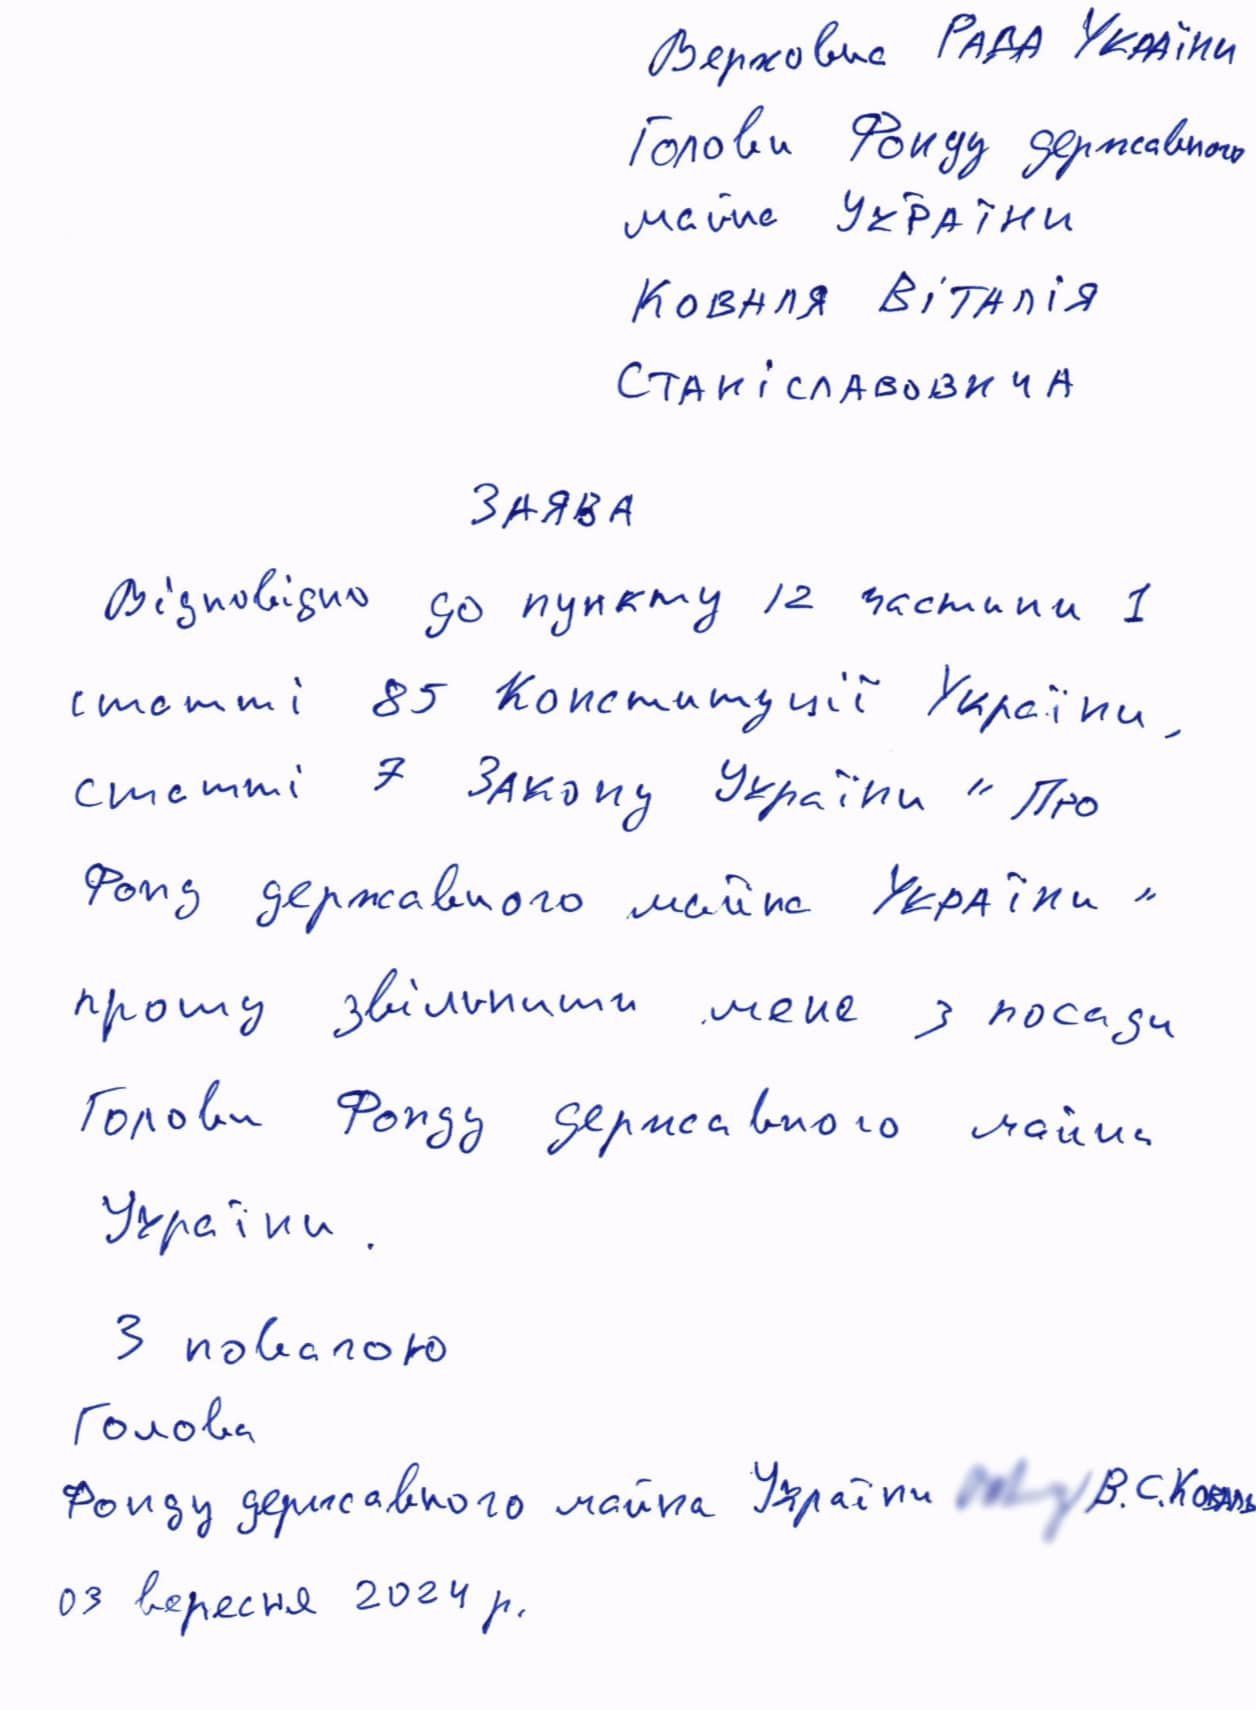 Верховна РАДА УКРАЇНИ
Голови Фонду державного
майна УКРАЇНИ
КОВАЛЯ ВІТАЛІЯ
СТАНІСЛАВОВИЧА
ЗАЯВА
Відповідно до пункту 12 частини 1
статті 85 Конституції України,
статті 7 Закону України "Про
Фонд державного майна України"
прошу звільнити мене з посади
Голови Фонду державного майна
України.
З повагою
Голова
Фонду державного майна України В.С.Коваль
03 вересня 2024 р.